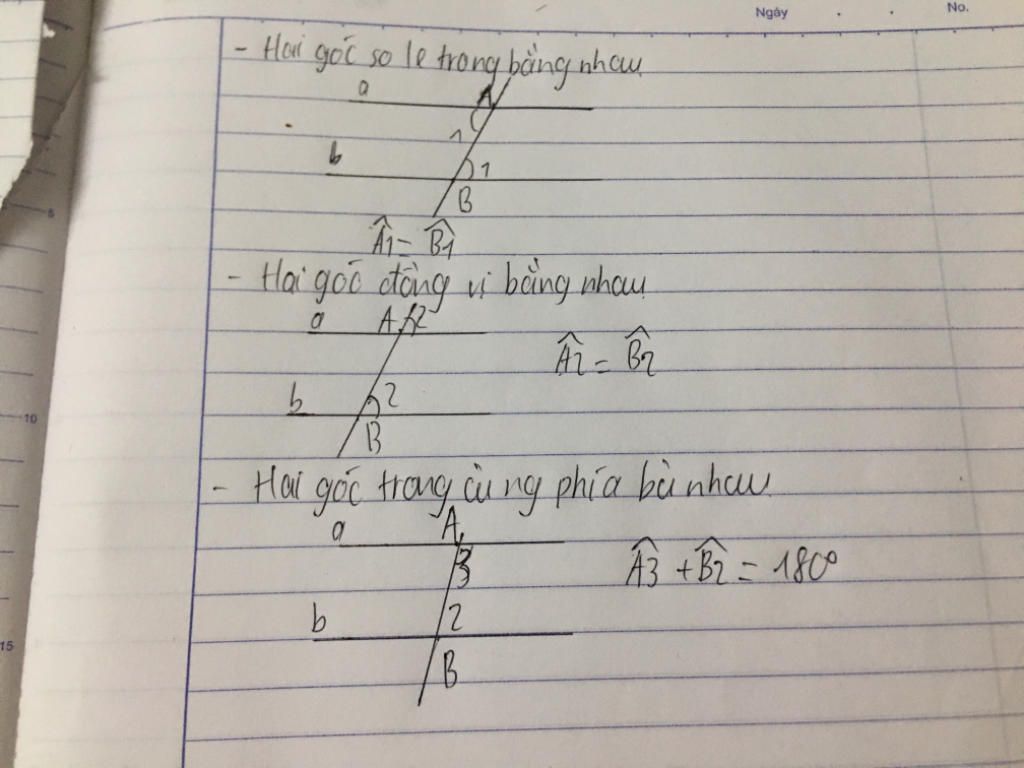 Ngày . . No.
- Hai góc so le trong bằng nhau
a A
1
b 1
B
Â1 = B̂1
5
- Hai góc đồng vị bằng nhau
a A 2
Â2 = B̂2
b 2
10
B
- Hai góc trong cùng phía bù nhau
a A
3
Â3 + B̂2 = 180°
b 2
15
B